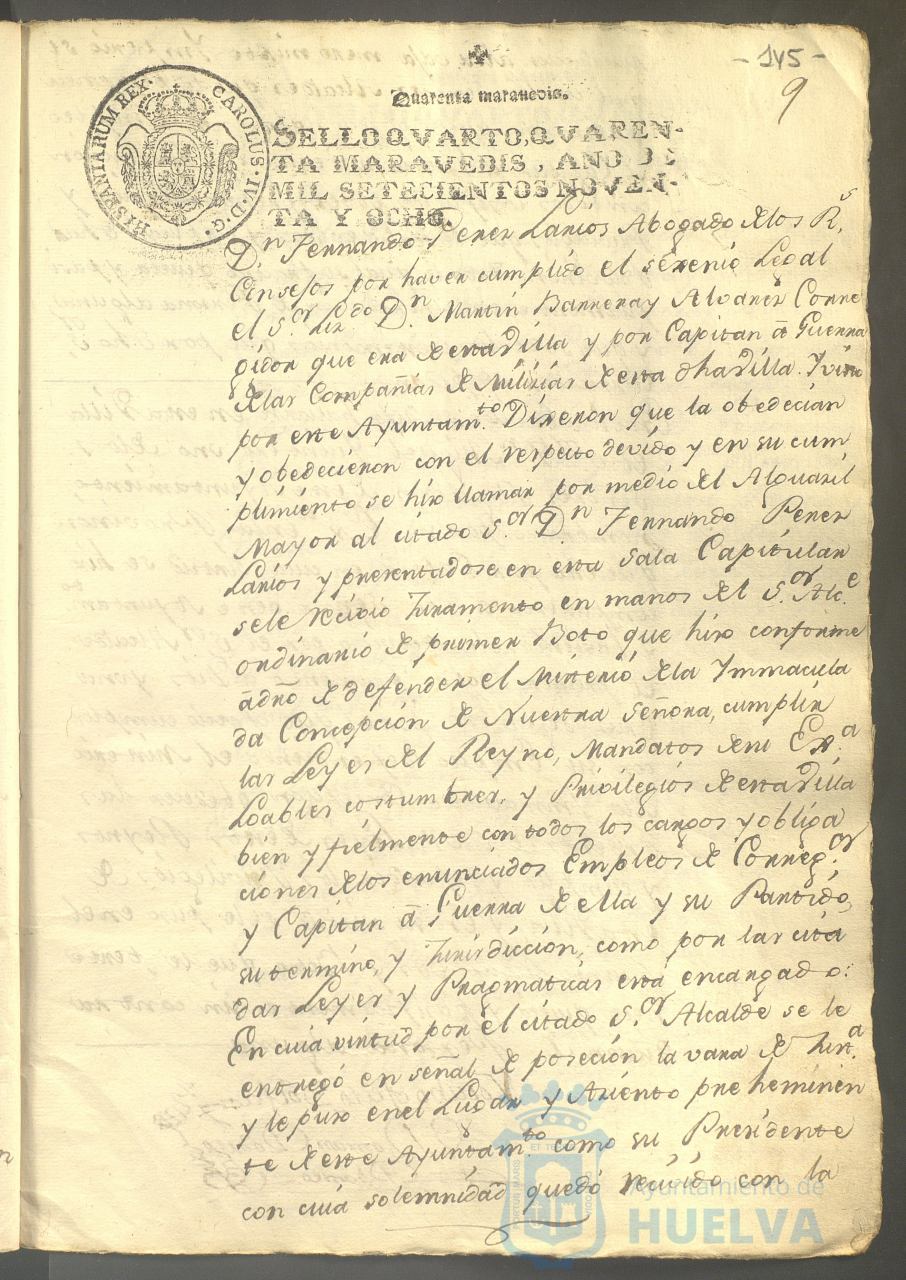 - 145 -
9
Quarenta maravedis.
HISPANIARUM REX · CAROLUS · IV · D · G ·
SELLO QVARTO, QVAREN-
TA MARAVEDIS, AÑO DE
MIL SETECIENTOS NOVEN-
TA Y OCHO.
Dn. Fernando Perez Larios Abogado de los Rs.
Consejos por haver cumplido el sexenio Legal
el Sor. Liz.do Dn. Martin Barrera y Alvarez Corre
gidor que era de esta Villa y por Capitan â Guerra
de las Compañias de Milizias de esta dha Villa. Y visto
por este Ayuntam.to Dixeron que la obedecian
y obedecieron con el respecto devido y en su cum
plimiento se hizo llamar por medio del Alguazil
Mayor al citado Sor. Dn. Fernando Perez
Larios y presentadose en esta Sala Capitular
se le recivio Juramento en manos del Sor. Alc.e
ordinario de primer Boto que hizo conforme
â dro de defender el Misterio de la Ymmacula
da Concepción de Nuestra Señora, cumplir
las Leyes del Reyno, Mandatos de su Exa.
Loables costumbres, y Privilegios de esta Villa
bien y fielmente con todos los cargos y obliga
ciones de los enunciados Empleos de Correg.or
y Capitan â Guerra de ella y su Partido,
su termino, y Jurisdiccion, como por las cita
das Leyes y Pragmaticas está encargado:
En cuia virtud por el citado Sor. Alcalde se le
entregó en señal de poseción la vara de Just.a
y le puso en el Lugar y Aziento preheminen
te de este Ayuntam.to como su Presidente
con cuia solemnidad quedó recivido con la
Ayuntamiento de
HUELVA